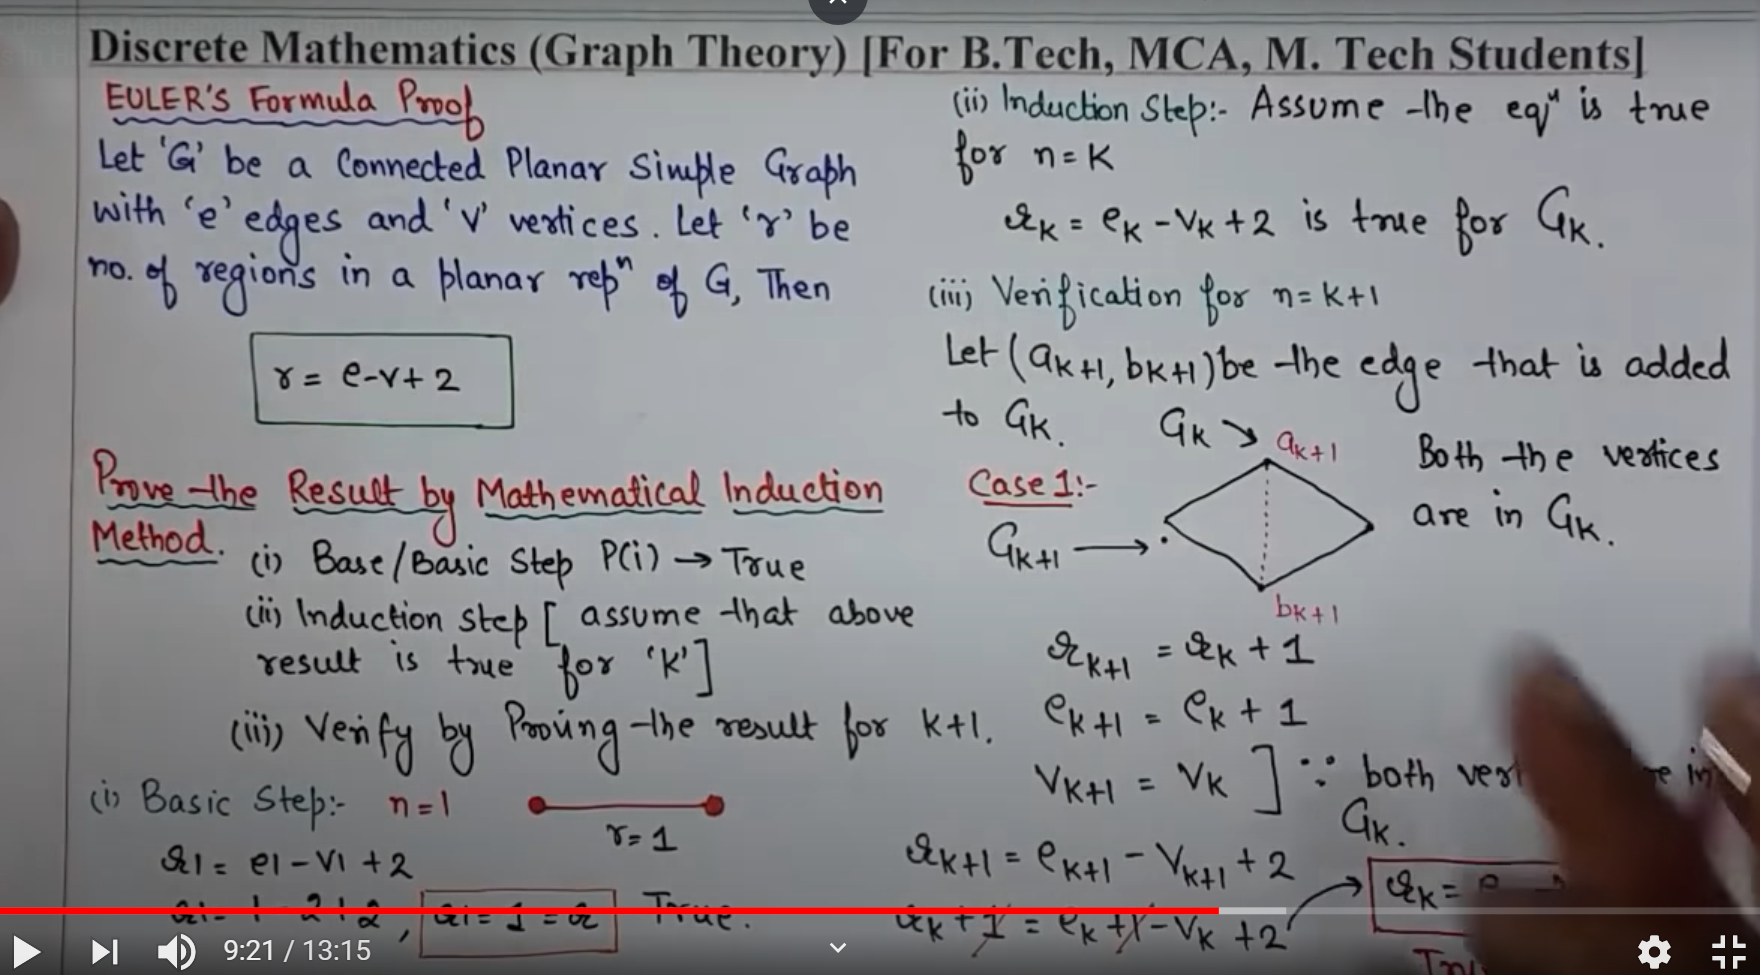 Discrete Mathematics (Graph Theory) [For B.Tech, MCA, M. Tech Students]
EULER'S Formula Proof
Let 'G' be a Connected Planar Simple Graph
with 'e' edges and 'v' vertices. Let 'r' be
no. of regions in a planar repⁿ of G, Then
r = e-v+2
Prove the Result by Mathematical Induction
Method.
(i) Base/Basic Step P(i) → True
(ii) Induction step [ assume that above
result is true for 'k' ]
(iii) Verify by Proving the result for k+1.
(i) Basic Step:- n=1
r=1
r1 = e1 - v1 + 2
r1 = 1 - 2 + 2, r1 = 1 = r True.
(ii) Induction Step:- Assume the eqⁿ is true
for n=K
rK = eK - VK + 2 is true for GK.
(iii) Verification for n=K+1
Let (aK+1, bK+1) be the edge that is added
to GK.
GK → aK+1
Case 1:-
Both the vertices
are in GK.
GK+1 →
bK+1
rK+1 = rK + 1
eK+1 = eK + 1
VK+1 = VK ] ∵ both in
GK.
rK+1 = eK+1 - VK+1 + 2
rK + 1 = eK + 1 - VK + 2
rK = e
9:21 / 13:15